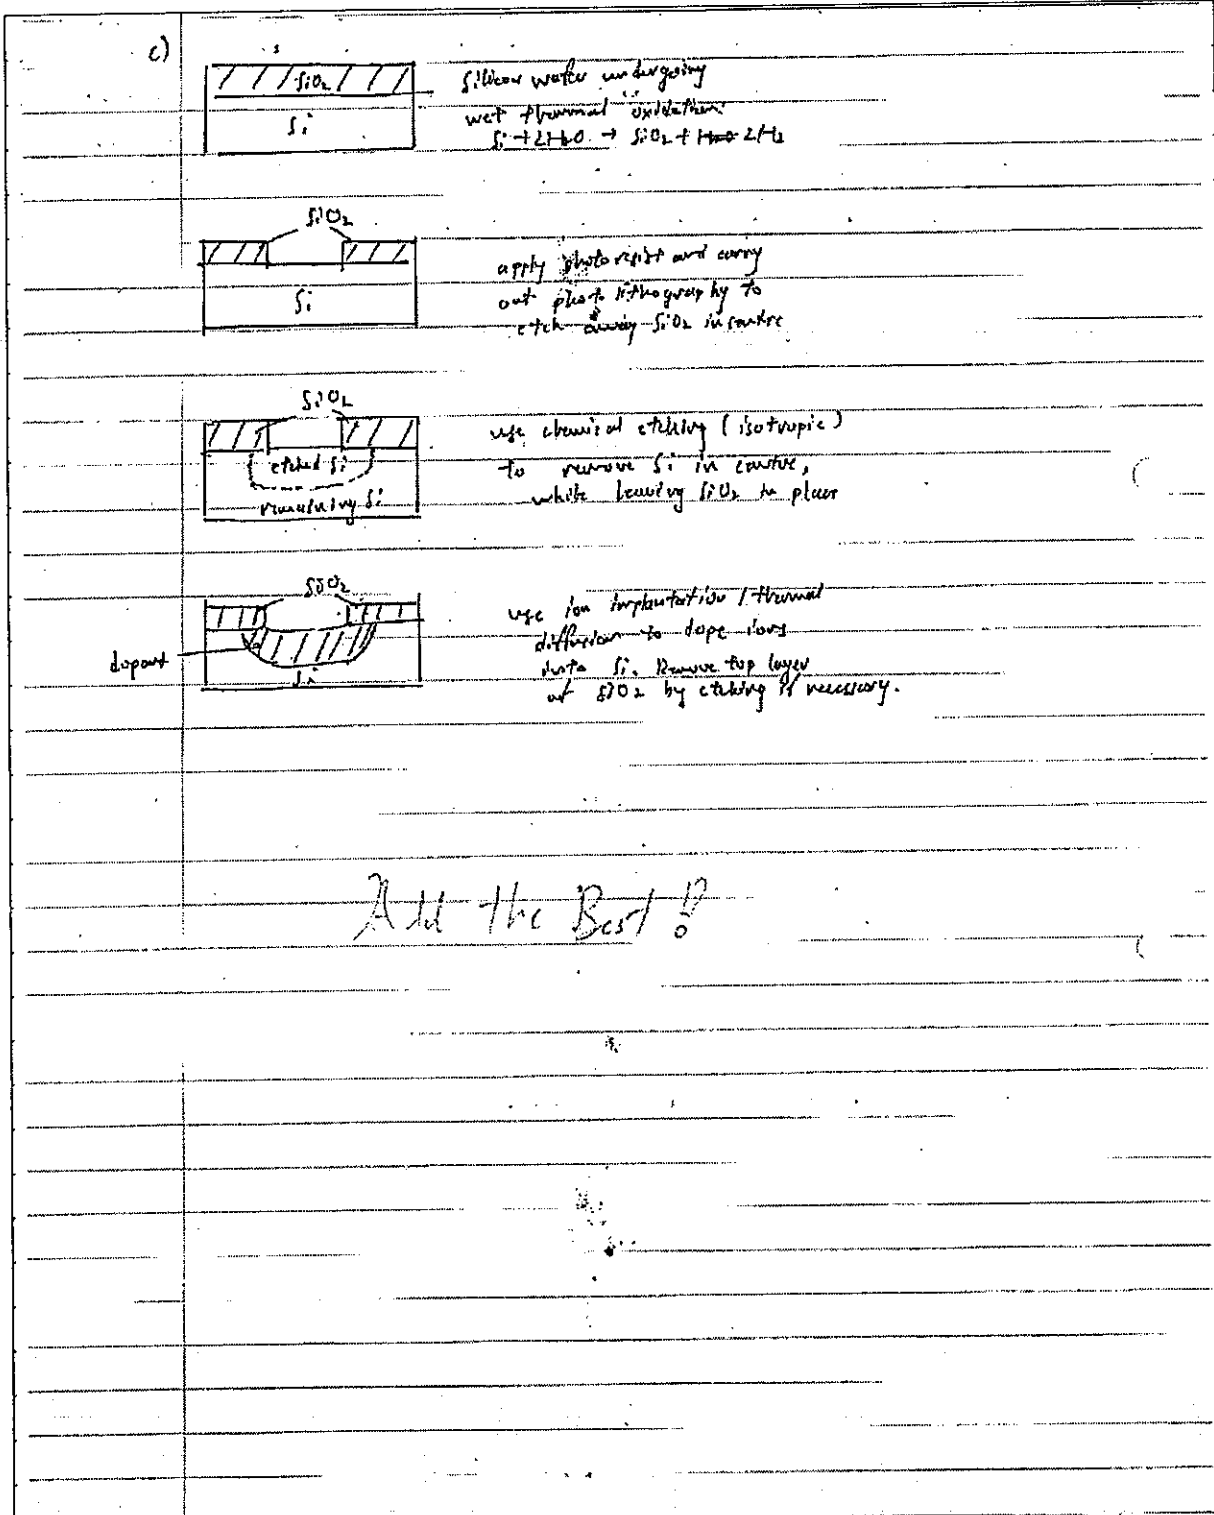 c)
SiO₂
Si
Silicon wafer undergoing
wet thermal oxidation:
Si + 2H₂O → SiO₂ + 2H₂
SiO₂
Si
apply photoresist and carry
out photolithography to
etch away SiO₂ in centre
SiO₂
etched Si
remaining Si
use chemical etching (isotropic)
to remove Si in centre,
while leaving SiO₂ in place
SiO₂
dopant
Si
use ion implantation / thermal
diffusion to dope ions
into Si. Remove top layer
of SiO₂ by etching if necessary.
All the Best!